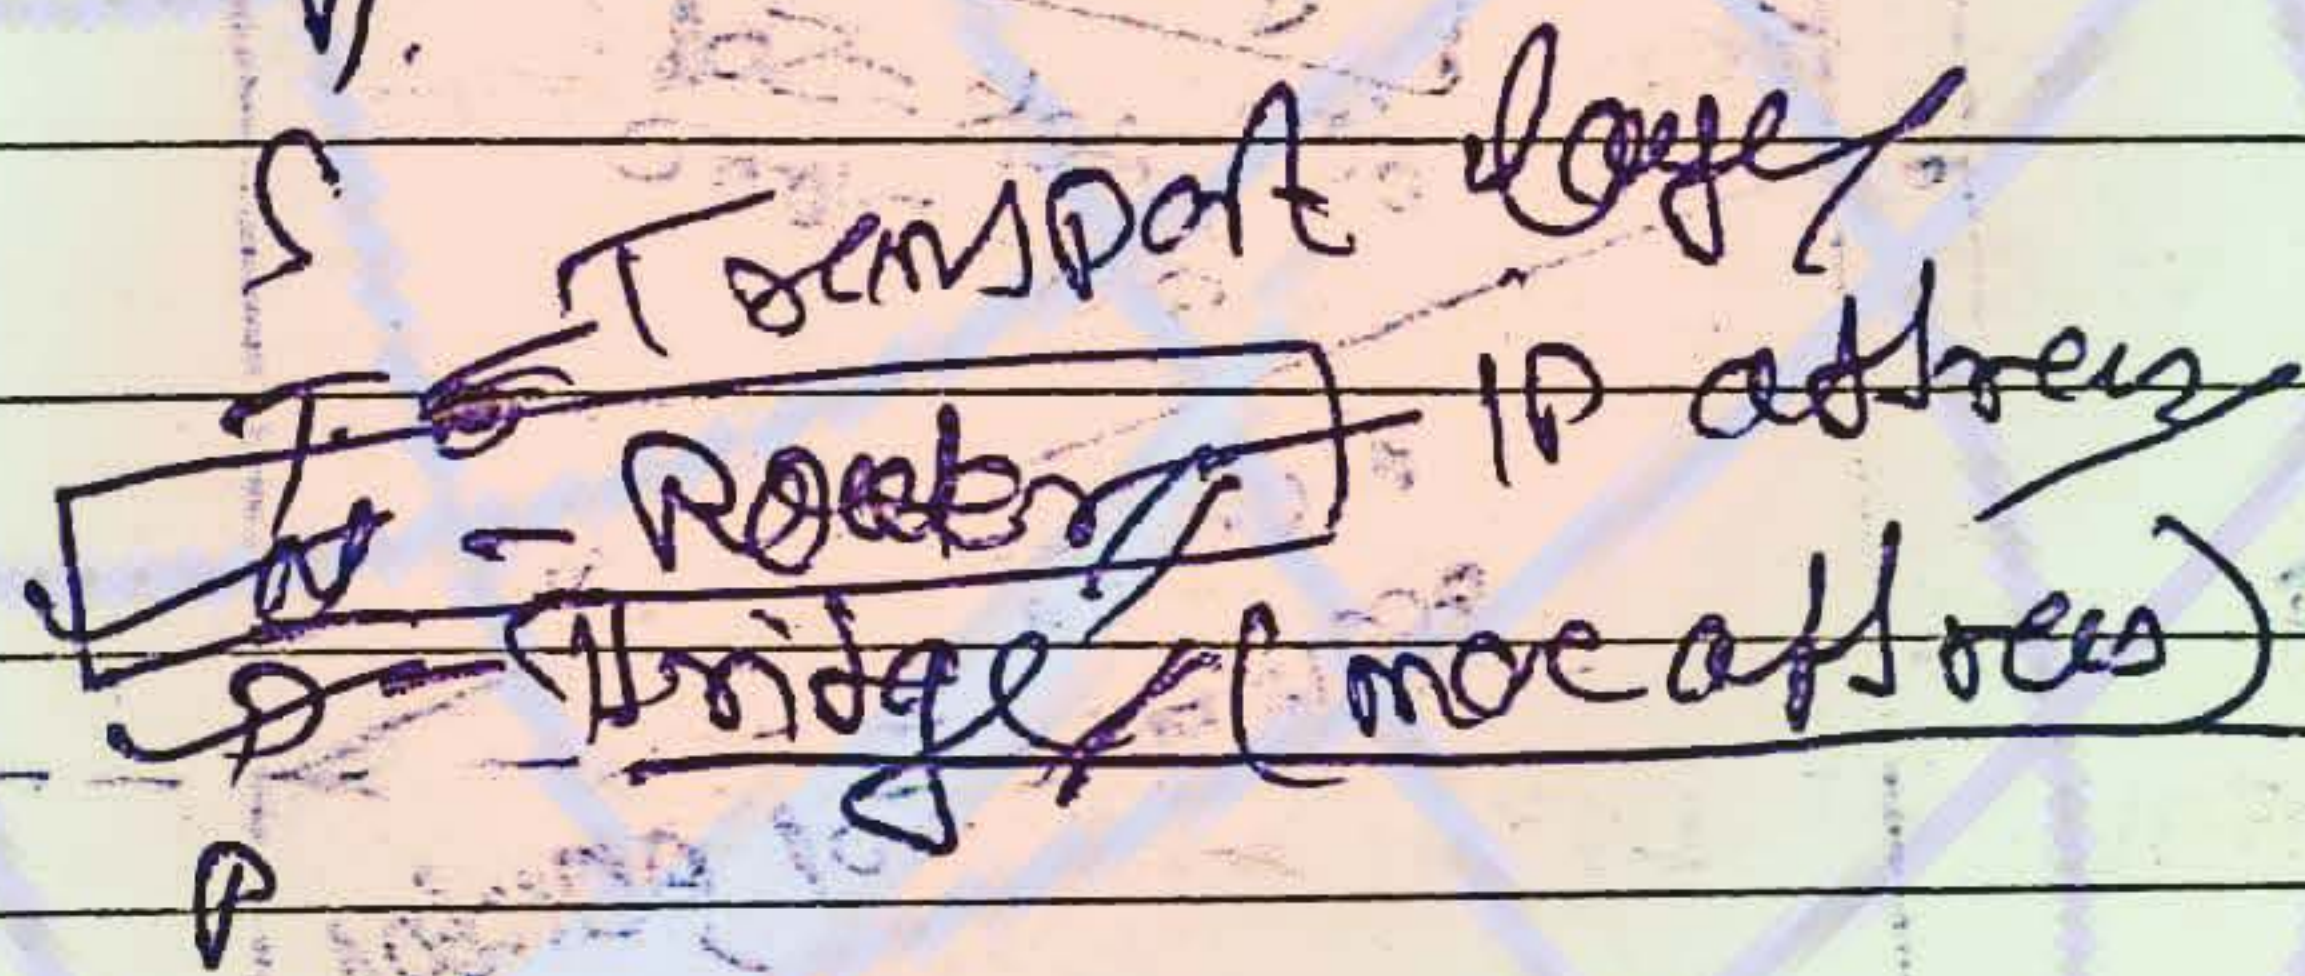 S
T. Transport layer
N - Router IP address
D - bridge (mac address)
P